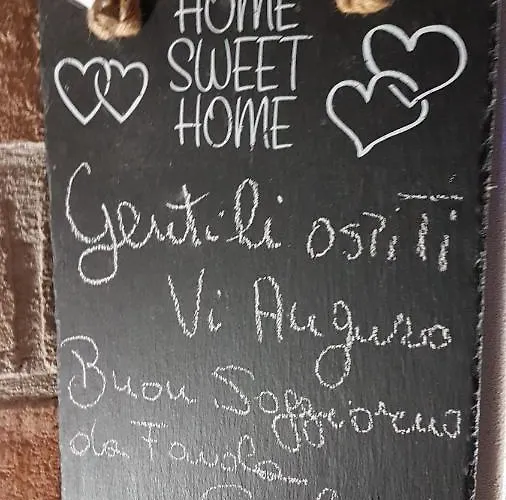 HOME
SWEET
HOME
Gentili ospiti
Vi Auguro
Buon Soggiorno
da Favola